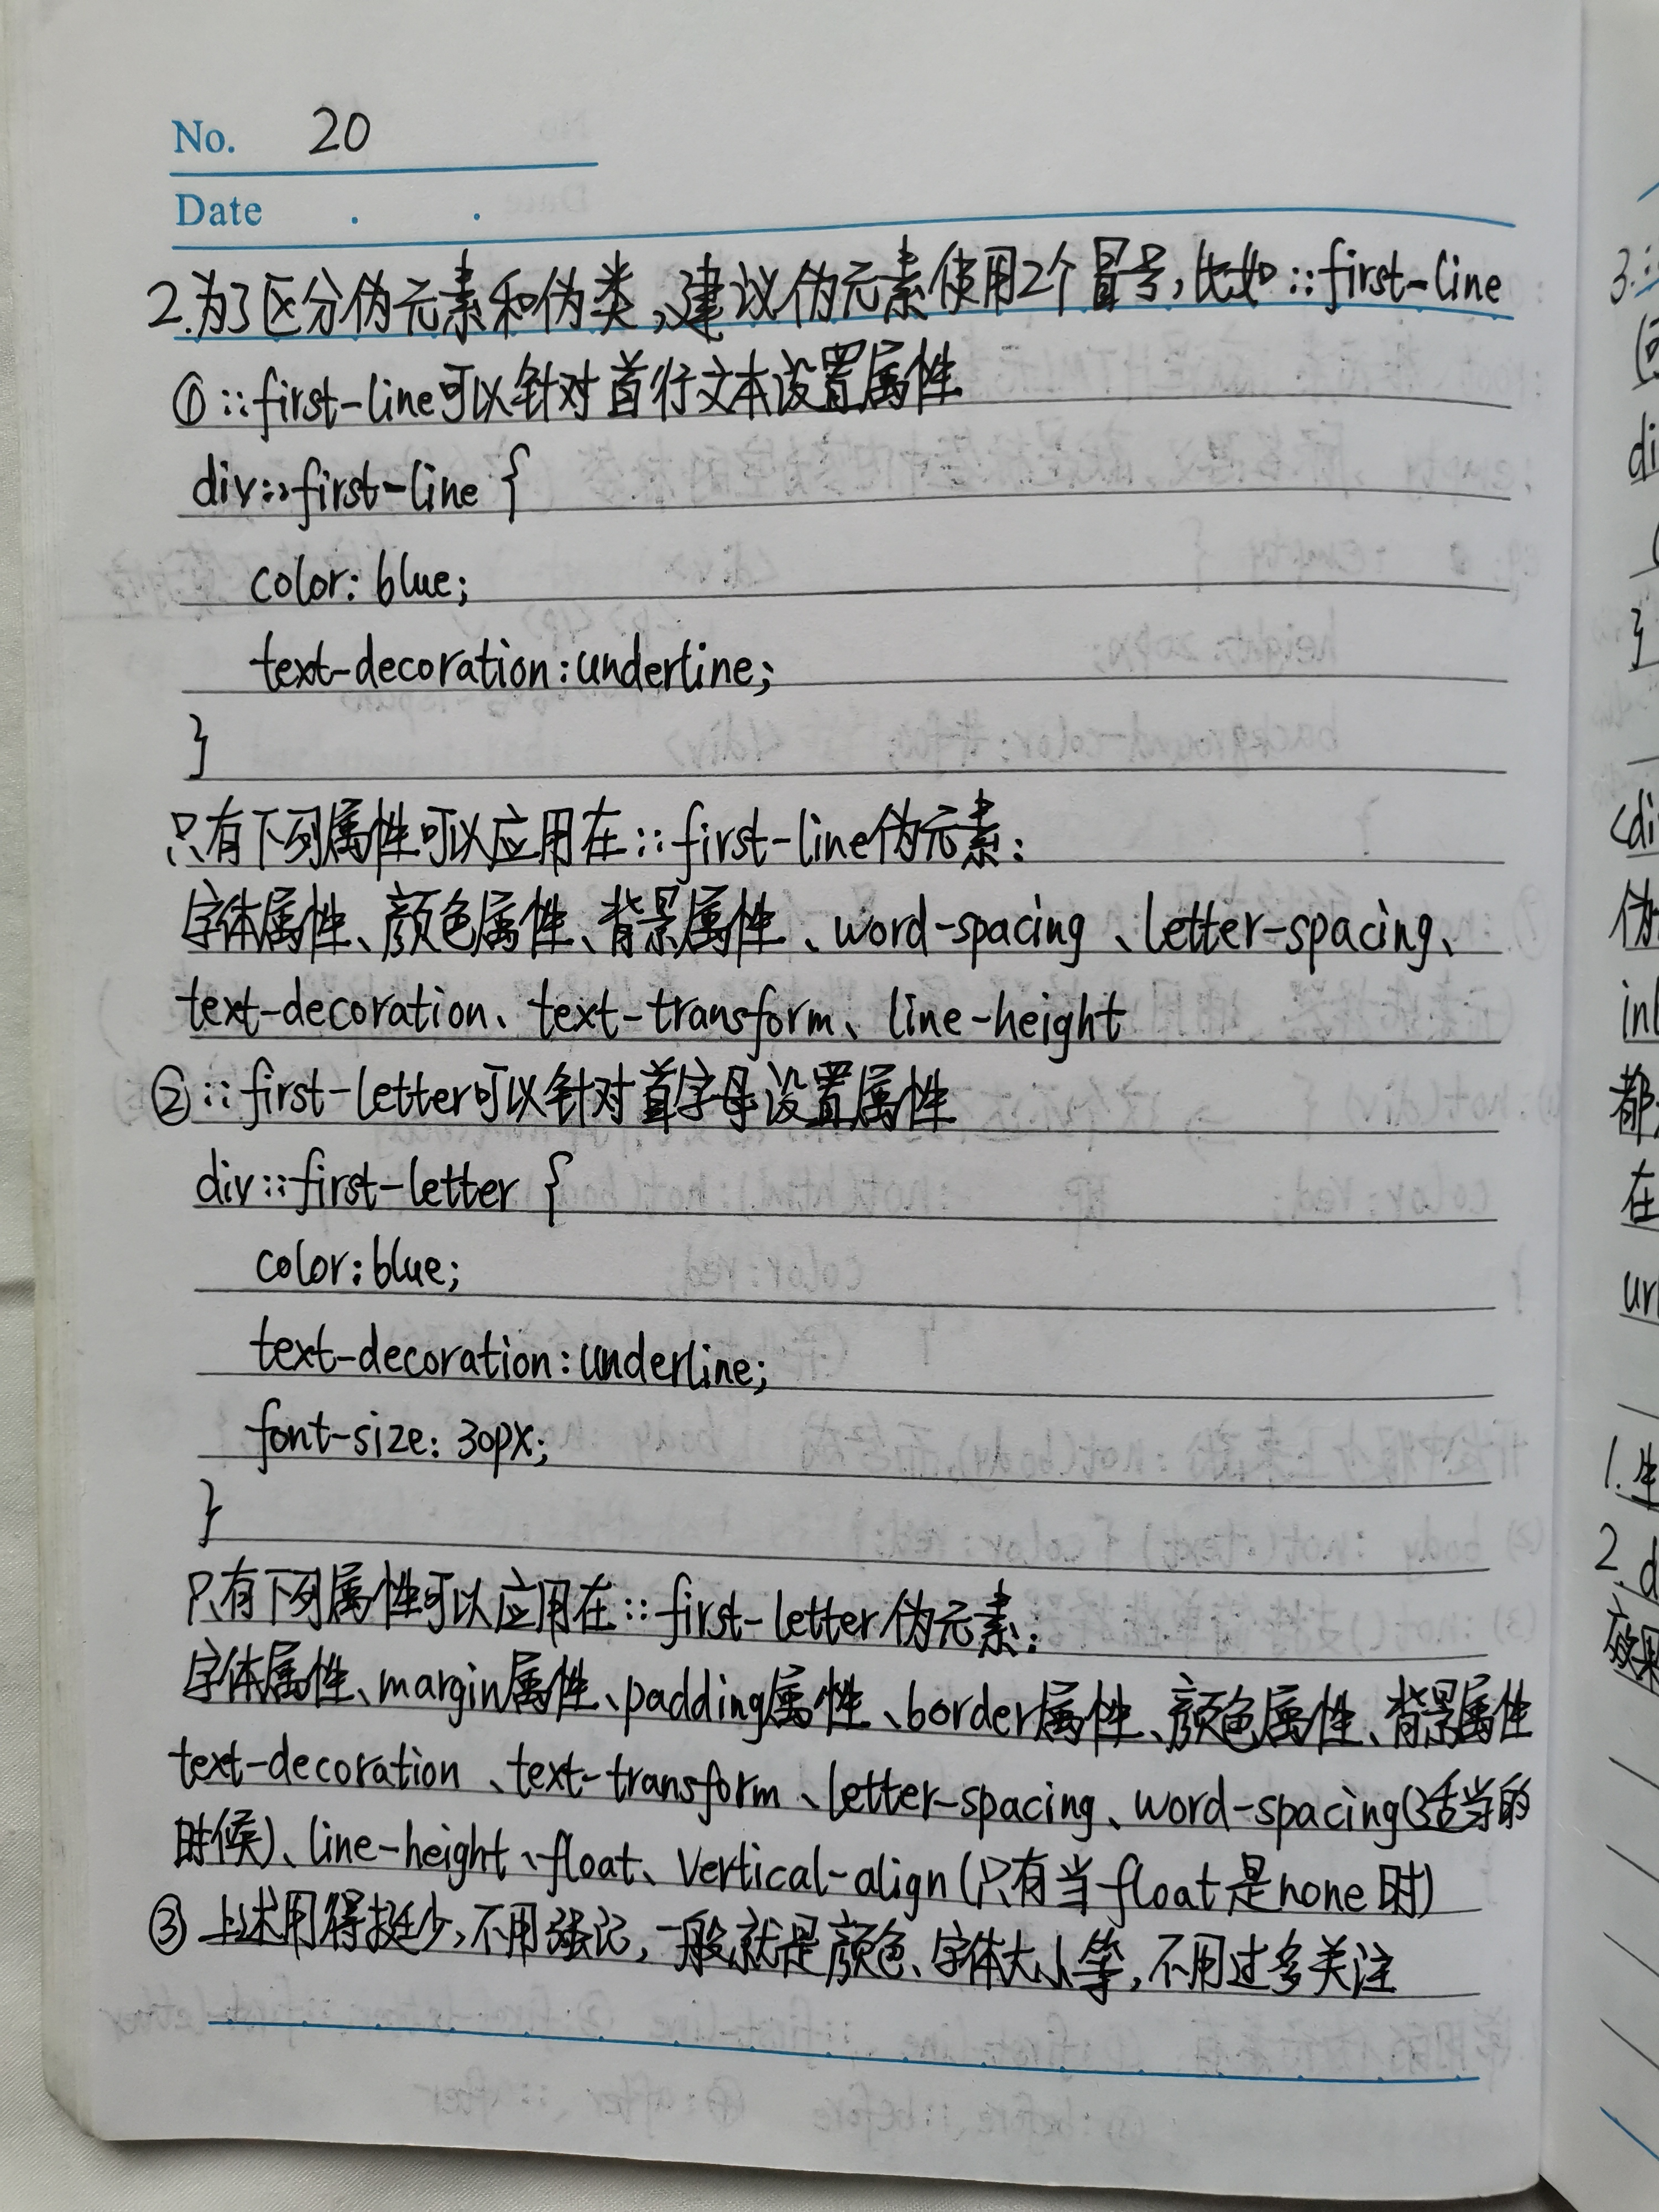 No. 20
Date . .
2.为了区分伪元素和伪类,建议伪元素使用2个冒号,比如::first-line
①::first-line可以针对首行文本设置属性
div::first-line {
color: blue;
text-decoration:underline;
}
只有下列属性可以应用在::first-line伪元素:
字体属性、颜色属性、背景属性、word-spacing、letter-spacing、
text-decoration、text-transform、line-height
②::first-letter可以针对首字母设置属性
div::first-letter {
color:blue;
text-decoration:underline;
font-size: 30px;
}
只有下列属性可以应用在::first-letter伪元素:
字体属性、margin属性、padding属性、border属性、颜色属性、背景属性
text-decoration、text-transform、letter-spacing、word-spacing(适当的
时候)、line-height、float、vertical-align(只有当float是none时)
③上述用得挺少,不用强记,一般就是颜色、字体大小等,不用过多关注